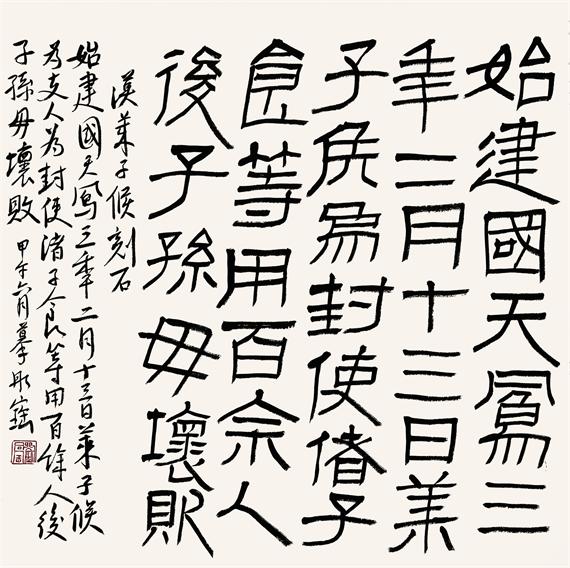 始建國天鳳三
年二月十三日萊
子侯為封使偖子
食等用百余人
後子孫毋壞敗
漢萊子候刻石
始建國天鳳三年二月十三日萊子候
為支人為封使诸子食等用百餘人後
子孫毋壞敗 甲午 摹